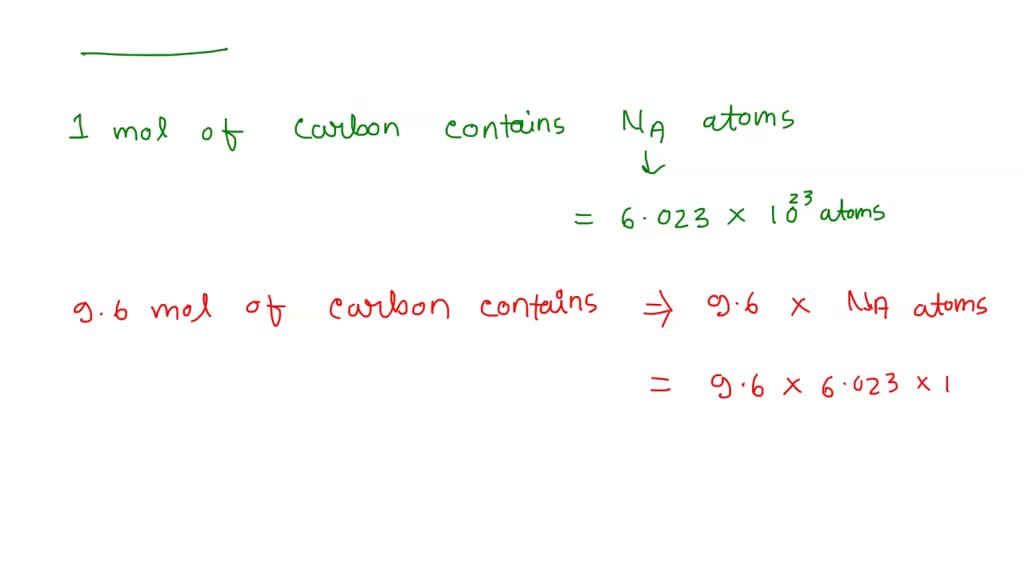 1 mol of carbon contains NA atoms
↓
= 6.023 × 10²³ atoms
9.6 mol of carbon contains ⇒ 9.6 × NA atoms
= 9.6 × 6.023 × 1